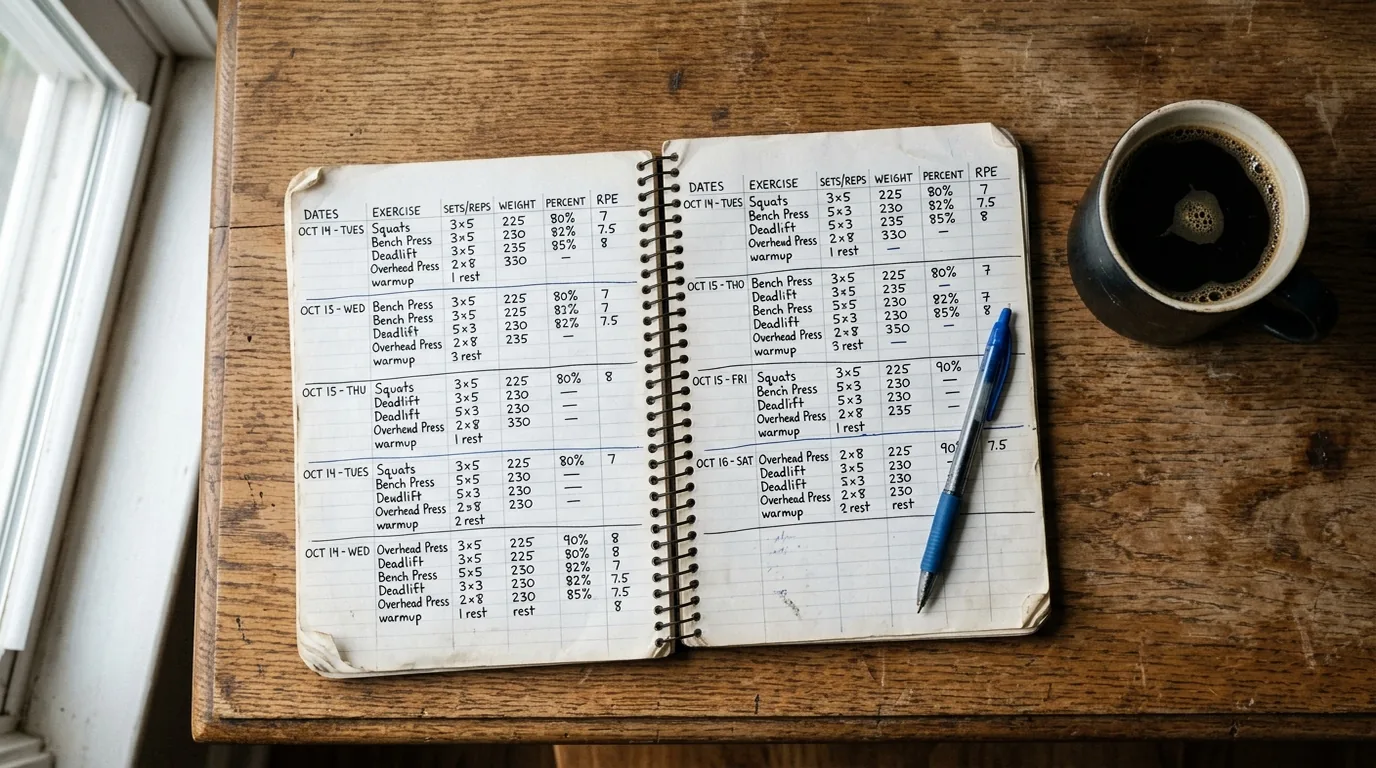 DATES EXERCISE SETS/REPS WEIGHT PERCENT RPE
OCT 14 - TUES Squats 3×5 225 80% 7
Bench Press 3×5 230 82% 7.5
Deadlift 3×5 235 85% 8
Overhead Press 2×8 330 —
warmup 1 rest
OCT 15 - WED Bench Press 3×5 225 80% 7
Bench Press 3×5 225 81% 7
Deadlift 5×3 230 82% 7.5
Overhead Press 2×8 235 —
warmup 3 rest
OCT 15 - THU Squats 3×5 225 80% 8
Deadlift 3×5 230 —
Deadlift 5×3 230 —
Overhead Press 2×8 330 —
warmup 1 rest
OCT 14 - TUES Squats 3×5 225 80% 7
Bench Press 5×5 230 —
Deadlift 5×3 230 —
Overhead Press 2×8 230 —
warmup 2 rest
OCT 14 - WED Overhead Press 3×5 225 90% 8
Deadlift 3×5 225 80% 8
Bench Press 5×5 230 82% 7
Deadlift 3×3 230 82% 7.5
Overhead Press 2×8 230 85% 7.5
warmup 1 rest rest 8
DATES EXERCISE SETS/REPS WEIGHT PERCENT RPE
OCT 14 - TUES Squats 3×5 225 80% 7
Bench Press 5×3 230 82% 7.5
Deadlift 5×3 235 85% 8
Overhead Press 2×8 330 —
warmup 1 rest —
OCT 15 - THO Bench Press 3×5 225 80% 7
Deadlift 3×5 235 —
Bench Press 5×5 230 82% 7
Deadlift 5×3 230 85% 8
Overhead Press 2×8 350 —
warmup 3 rest —
OCT 15 - FRI Squats 3×5 225 90%
Bench Press 5×3 230 —
Deadlift 5×3 230 —
Overhead Press 2×8 235 —
warmup 1 rest
OCT 16 - SAT Overhead Press 2×8 225 7.5
Deadlift 3×5 230
Deadlift 5×3 230
Overhead Press 2×8 230
warmup 2 rest rest